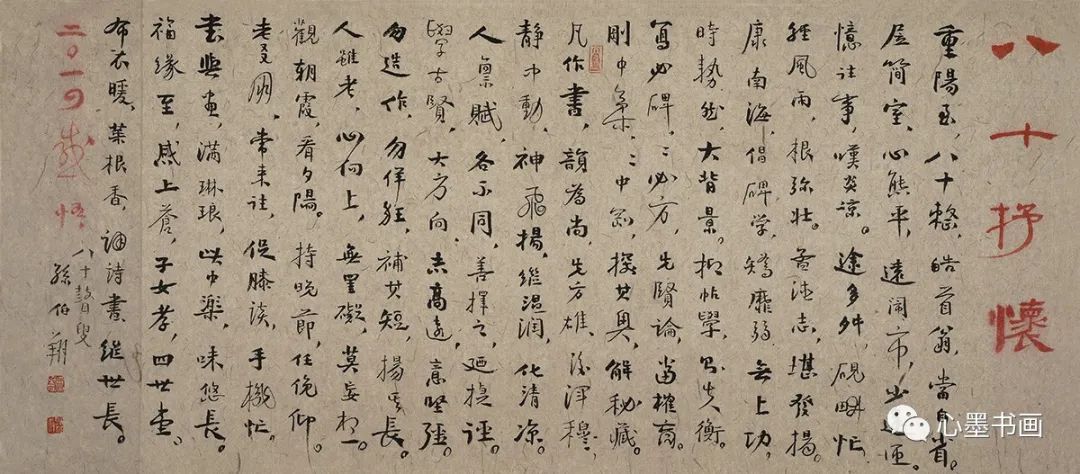 八十抒懷
重陽至，八十整，皓首翁，當自省。
居简室，心態平，遠闹市，少
憶往事，嘆炎凉。途多舛，硯畊忙
經風雨，根弥壮。志，堪發揚。
康南海，倡碑學，矯靡弱，無上功，
時勢然，大背景。抑帖學，失衡。
寫必碑，〻必方，先賢論，當榷商。
剛中柔，〻中剛，探其奥，解秘藏。
凡作書，韻為尚，先方雄，後渾穆，
静中動，神飛揚，继温润，化清凉。
人禀賦，各不同，善擇之，廼捷徑。
學古賢，大方向，志高遠，意堅强。
勿造作，勿佯狂，補其短，揚其長。
人雖老，心向上，無罣礙，莫妄想。
觀朝霞，看夕陽。持晚節，任俛仰。
老友朋，常来往，促膝談，手機忙。
書與畫，满琳琅，此中樂，味悠長。
福緣至，感上蒼，子女孝，四世堂。
布衣暖，菜根香，詩畫，继世長。
二〇一四感悟
八十瞽叟
孫伯翔
心墨书画